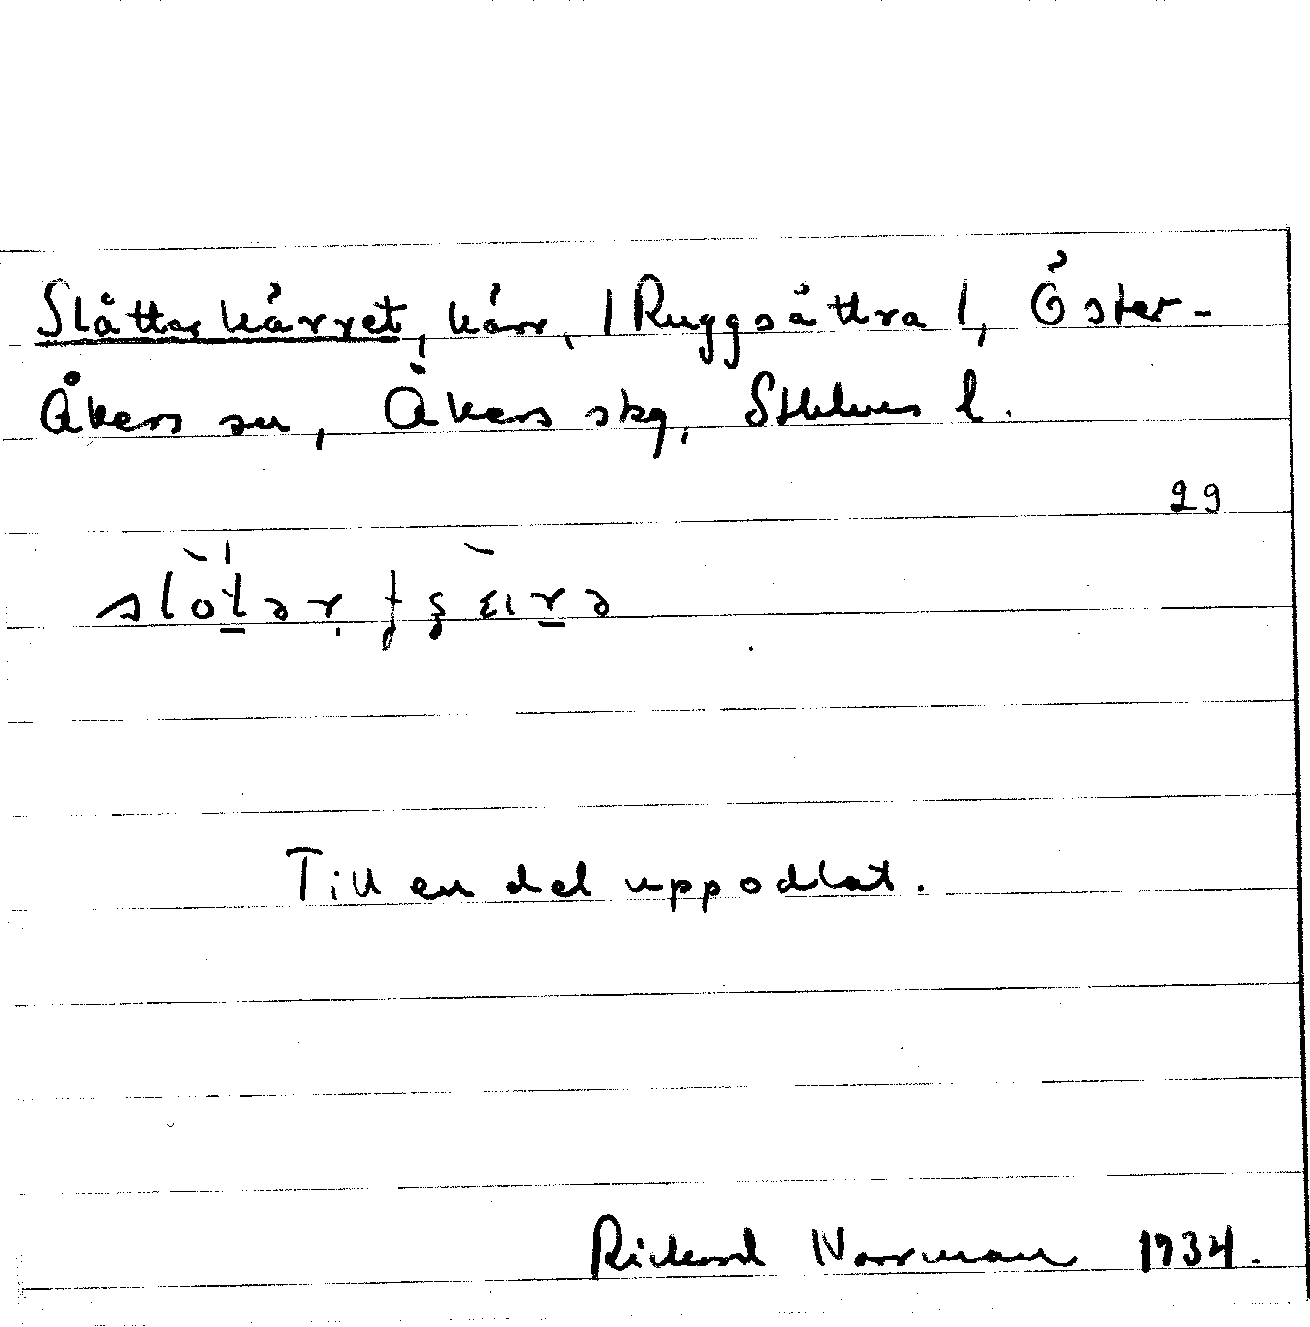 Slåtterkärret, kärr, /Ruggsättra/, Öster-
Åkers sn, Åkers skg, Sthlms l.
29
Till en del uppodlat.
Rickard Norrman 1934.